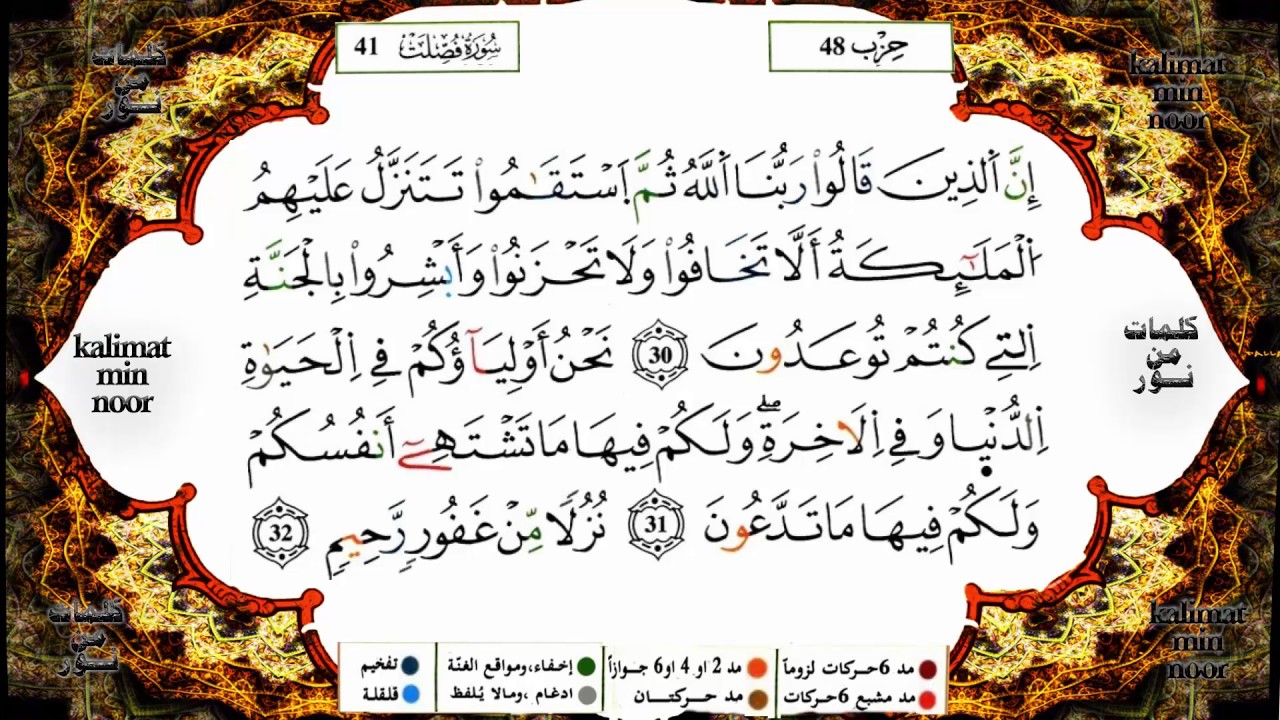 كلمات
من
نور
سُورَةُ فُصِّلَتْ 41
حِزْب 48
kalimat
min
noor
إِنَّ اَ۬لذِينَ قَالُواْ رَبُّنَا اَ۬للَّهُ ثُمَّ اَ۪سْتَقَٰمُواْ تَتَنَزَّلُ عَلَيْهِمُ
اُ۬لْمَلَٰٓئِكَةُ أَلَّا تَخَافُواْ وَلَا تَحْزَنُواْ وَأَبْشِرُواْ بِالْجَنَّةِ
اِ۬لتِے كُنتُمْ تُوعَدُونَ 30 نَحْنُ أَوْلِيَآؤُكُمْ فِے اِ۬لْحَيَوٰةِ
اِ۬لدُّنْي۪ا وَفِے اِ۬لَاخِرَةِۖ وَلَكُمْ فِيهَا مَا تَشْتَهِےٓ أَنفُسُكُمْ
وَلَكُمْ فِيهَا مَا تَدَّعُونَ 31 نُزُلًا مِّنْ غَفُورٍ رَّحِيمٍ 32
kalimat
min
noor
كلمات
من
نور
كلمات
من
نور
kalimat
min
noor
مد 6 حركات لزوماً
مد 2 او 4 او 6 جوازاً
إخفاء، ومواقع الغنّة
تفخيم
مد مشبع 6 حركات
مد حركتان
ادغام، ومالا يُلفظ
قلقلة